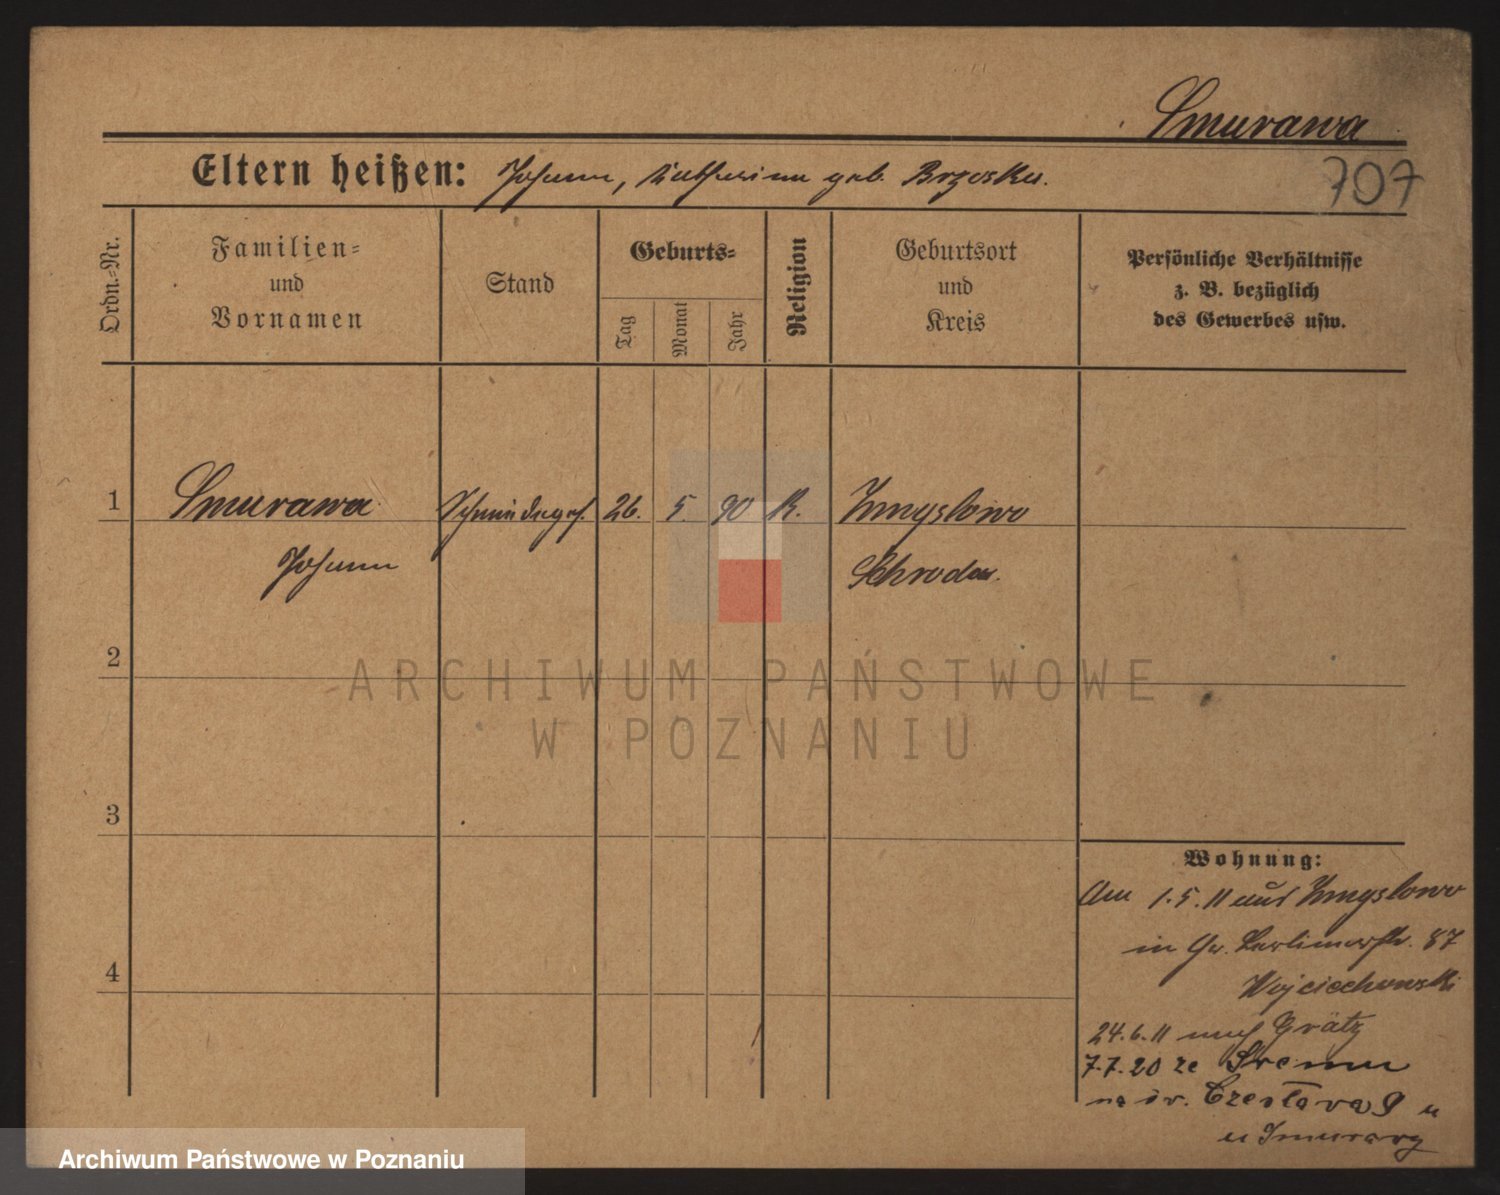 Smurawa
Eltern heißen: Johann, Katharina geb. Brzoska.
707
Ordn.-Nr.
Familien-
und
Vornamen
Stand
Geburts-
Tag
Monat
Jahr
Religion
Geburtsort
und
Kreis
Persönliche Verhältnisse
z. B. bezüglich
des Gewerbes usw.
1
Smurawa
Schmiedeges.
26.
5.
90
K.
Zmyslowo
Johann
Schroda.
2
3
4
Wohnung:
Am 1.5.11 aus Zmyslowo
in Gr. Berlinerstr. 87
Wojciechowski
24.6.11 nach Grätz
7.7.20 ze Sremu
na św. Czesława 9 u
Smurawy
ARCHIWUM PAŃSTWOWE
W POZNANIU
Archiwum Państwowe w Poznaniu